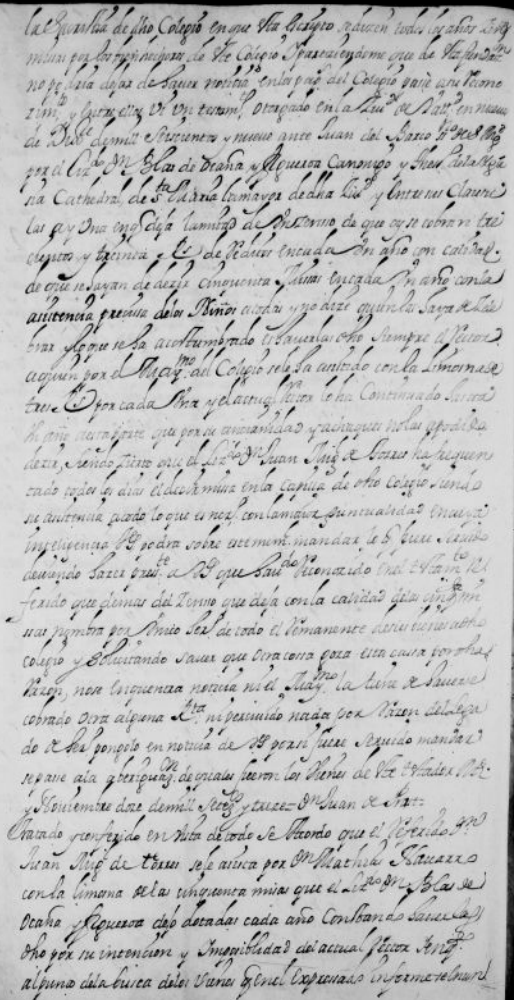 la Guardia de dho Colegio en que esta escripto se dizen todos los años
misas por los bienhechores de este Colegio Y pareziendome que de esta
no podria dejar de haver noticia en los papeles del Colegio pase a su reconozi
zimto y entre ellos Vi Un testamto otorgado en la de en nueve
de Dizre de mill seiscientos y nueve ante Juan del Barco
por el Lizdo Dn Blas de Ocaña y Figueroa Canonigo y thess. de la
sia Cathedral de Sta Maria la mayor de dha y entre sus Clausu
las ay Una en q deja la mitad de Un zenso de que oy se cobran tre
cientos y treinta y Rs de Reditos en cada Un año con calidad
de que se ayan de dezir cinquenta Missas en cada Un año con la
asistencia precisa de los Niños y no dize quien las haya de zele
brar y lo que se ha acostumbrado es haverlas dho siempre el Rector
a quien por el Maymo del Colegio se le ha asistido con la limosna de
tres Rs por cada Una y el actual Rector lo ha Continuado hasta
Un año a esta parte que por su ancianidad y achaques no las a podido
dezir, siendo zierto que el Lizdo Dn Juan de Torres ha frequen
tado todos los dias el dezir misa en la Capilla de dho Colegio siendo
su asistencia a todo lo que es nezo con la mayor puntualidad en cuya
inteligencia VS podra sobre este mandar lo q fuere servido
deviendo hazer preste a VS que haviendo Reconozido en el testamto re
ferido que demas del Zenso que deja con la calidad de las cinqta mi
sas nombra por Unico de todo el Remanente de sus vienes a dho
Colegio y solicitando saver que otra cossa goza esta cassa por dha
Razon, no se encuentra noticia ni el Maymo la tiene de haverse
cobrado otra alguna Rta ni percivido nada por Razon del lega
do de pongolo en noticia de VS por si fuere servido mandar
se pase a la aberiguazn de quales fueron los Vienes de este testador
y Noviembre doze de mill setezs y treze Dn Juan de
Tratado y conferido en vista de todo se Acordo que el Referido Dn
Juan de Torres se le asista por Dn Mathias Navarro
con la limosna de las cinquenta misas que el Lizdo Dn Blas de
Ocaña y Figueroa dejo dotadas cada año Constando haverlas
dho por su intencion y Imposiblidad del actual Rector
alguno de la busca de los Vienes q en el Expresado Informe se